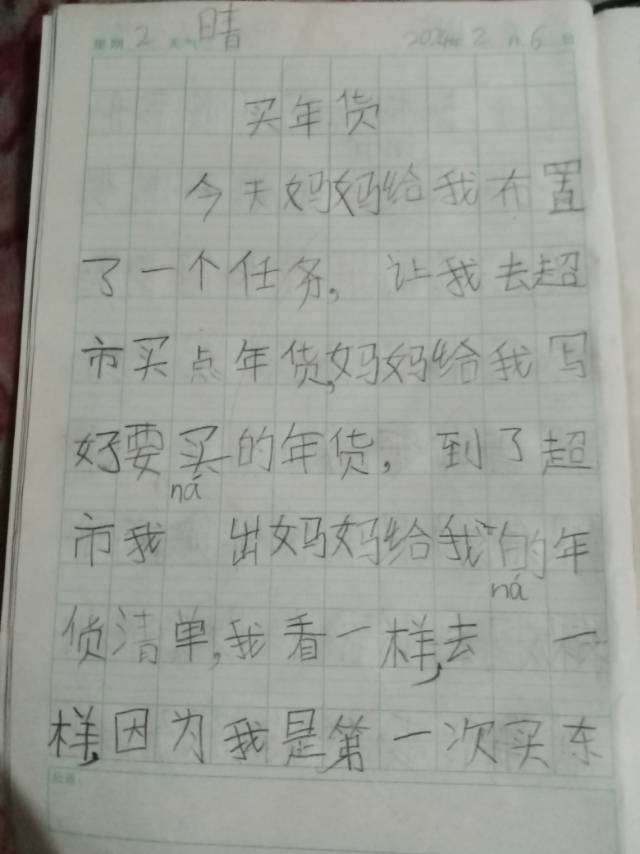 星期 2 天气 晴 2024年 2 月 6 日
买年货
今天妈妈给我布置
了一个任务，让我去超
市买点年货，妈妈给我写
好要买的年货，到了超
ná
市我 出妈妈给我的年
ná
货清单，我看一样，去 一
样，因为我是第一次买东